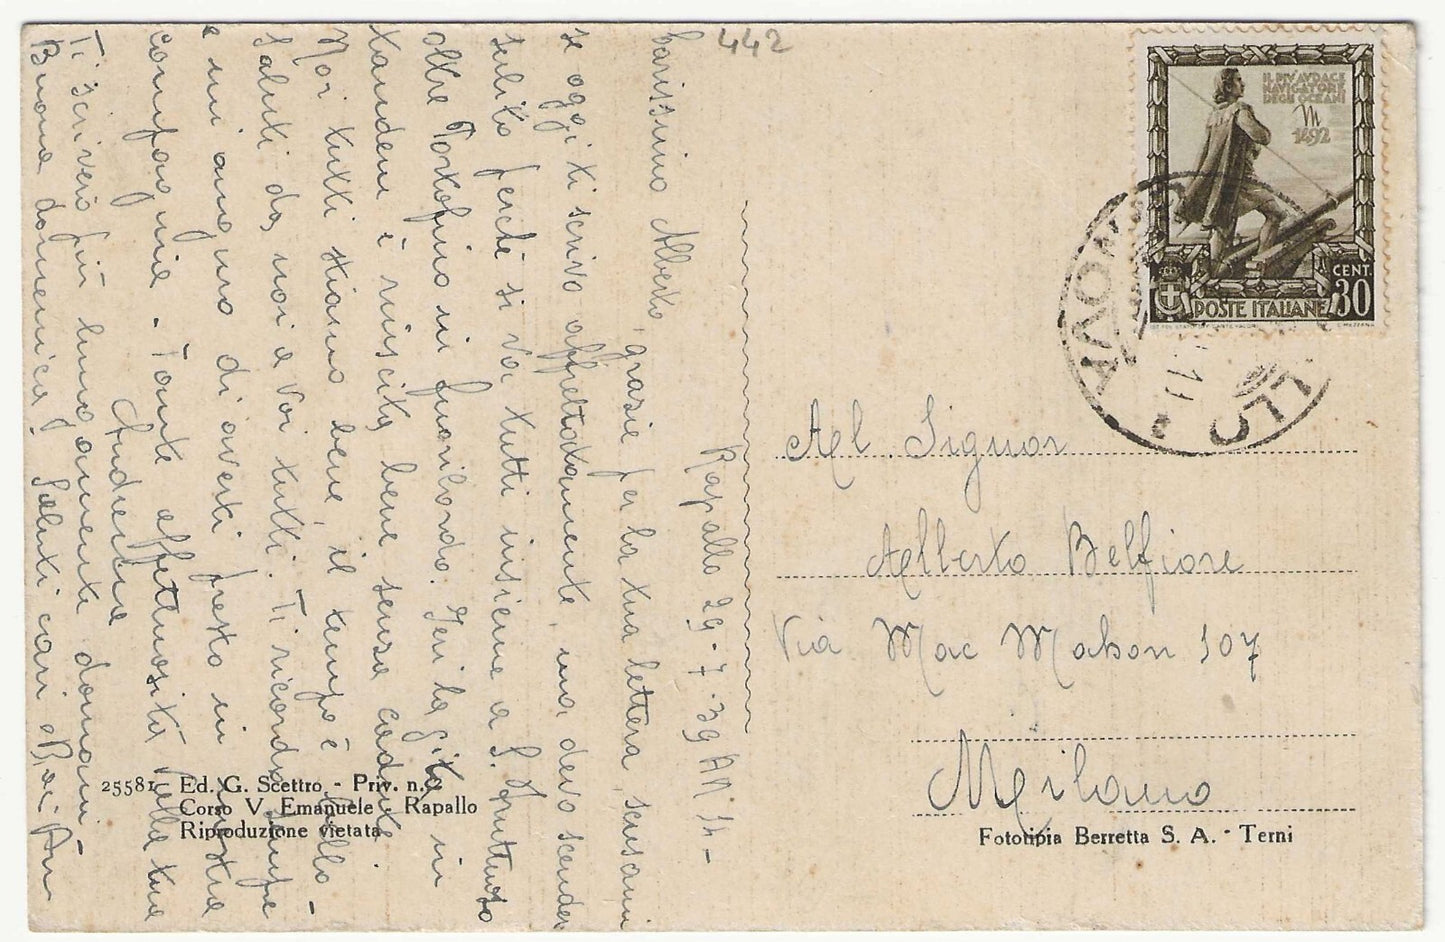 442
Rapallo 29-7-39 A XVII -
Carissimo Alberto,
grazie per la tua lettera, scusami
se oggi ti scrivo affrettatamente, ma devo scendere
subito perchè si va tutti insieme a S. Fruttuoso
oltre Portofino in fuoribordo. Ieri la gita in
tandem è riuscita bene senza cadute.
Noi tutti stiamo bene, il tempo è bello -
Saluti da noi a voi tutti. Ti ricordo sempre
e mi auguro di averti presto in nostra
compagnia - Tante affettuosità dalla tua
Andreina
Ti scriverò più lungamente domani
Buona domenica! Saluti cari e Baci
IL PIV' AVDACE
NAVIGATORE
DEGLI OCEANI
1492
CENT.
30
POSTE ITALIANE
Al Signor
Alberto Belfiore
Via Mac Mahon 107
Milano
25581 - Ed. G. Scettro - Priv. n. 2
Corso V. Emanuele - Rapallo
Riproduzione vietata
Fototipia Berretta S. A. - Terni